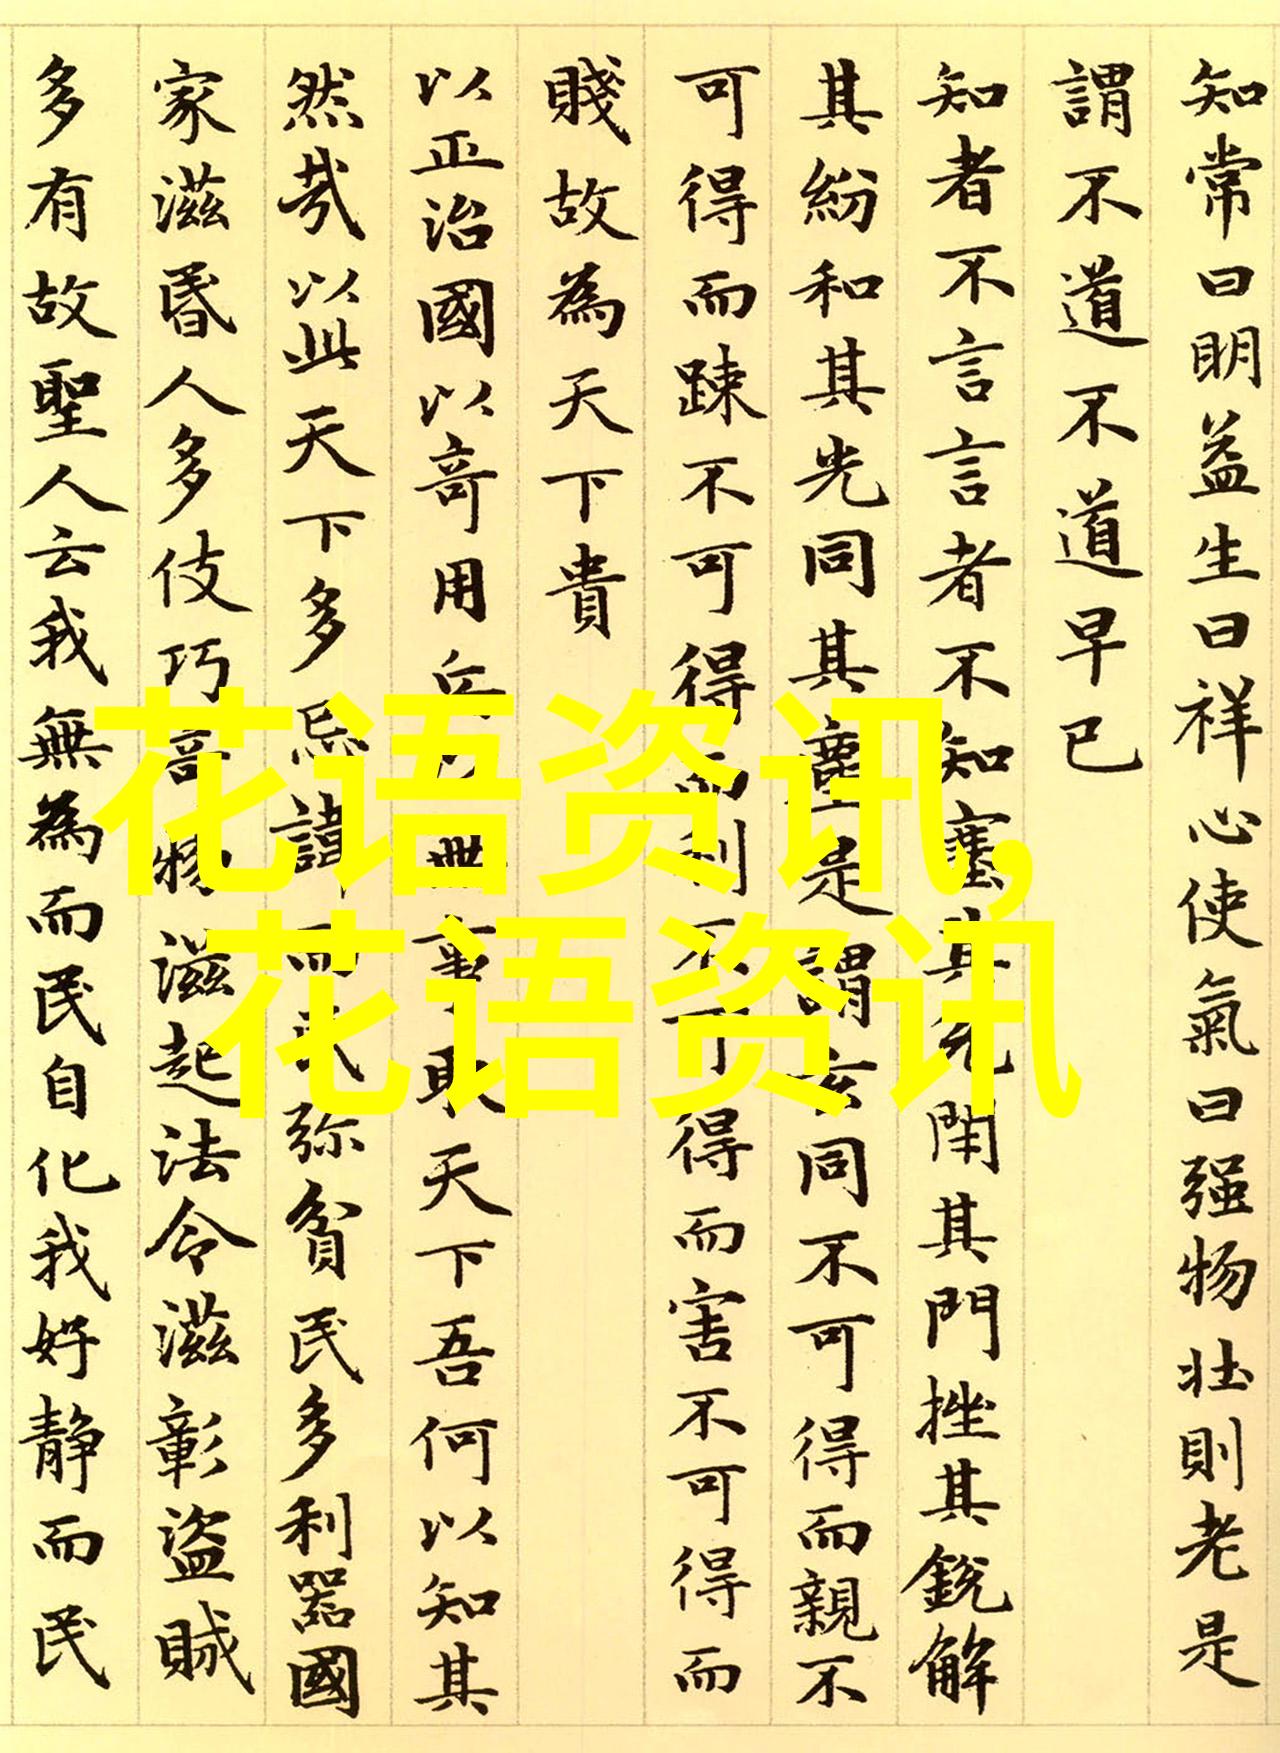 知常曰明益生曰祥心使氣曰强物壯則老是
謂不道不道早已
知者不言言者不知塞其兌閇其門挫其銳解
其紛和其光同其塵是謂玄同不可得而親不
可得而踈不可得而利不可得而害不可得而
賤故為天下貴
以正治國以竒用兵以無事取天下吾何以知其
然哉以此天下多忌諱而民弥貧民多利器國
家滋昬人多伎巧竒物滋起法令滋彰盜賊
多有故聖人云我無為而民自化我好静而民
花语资讯,
花语资讯